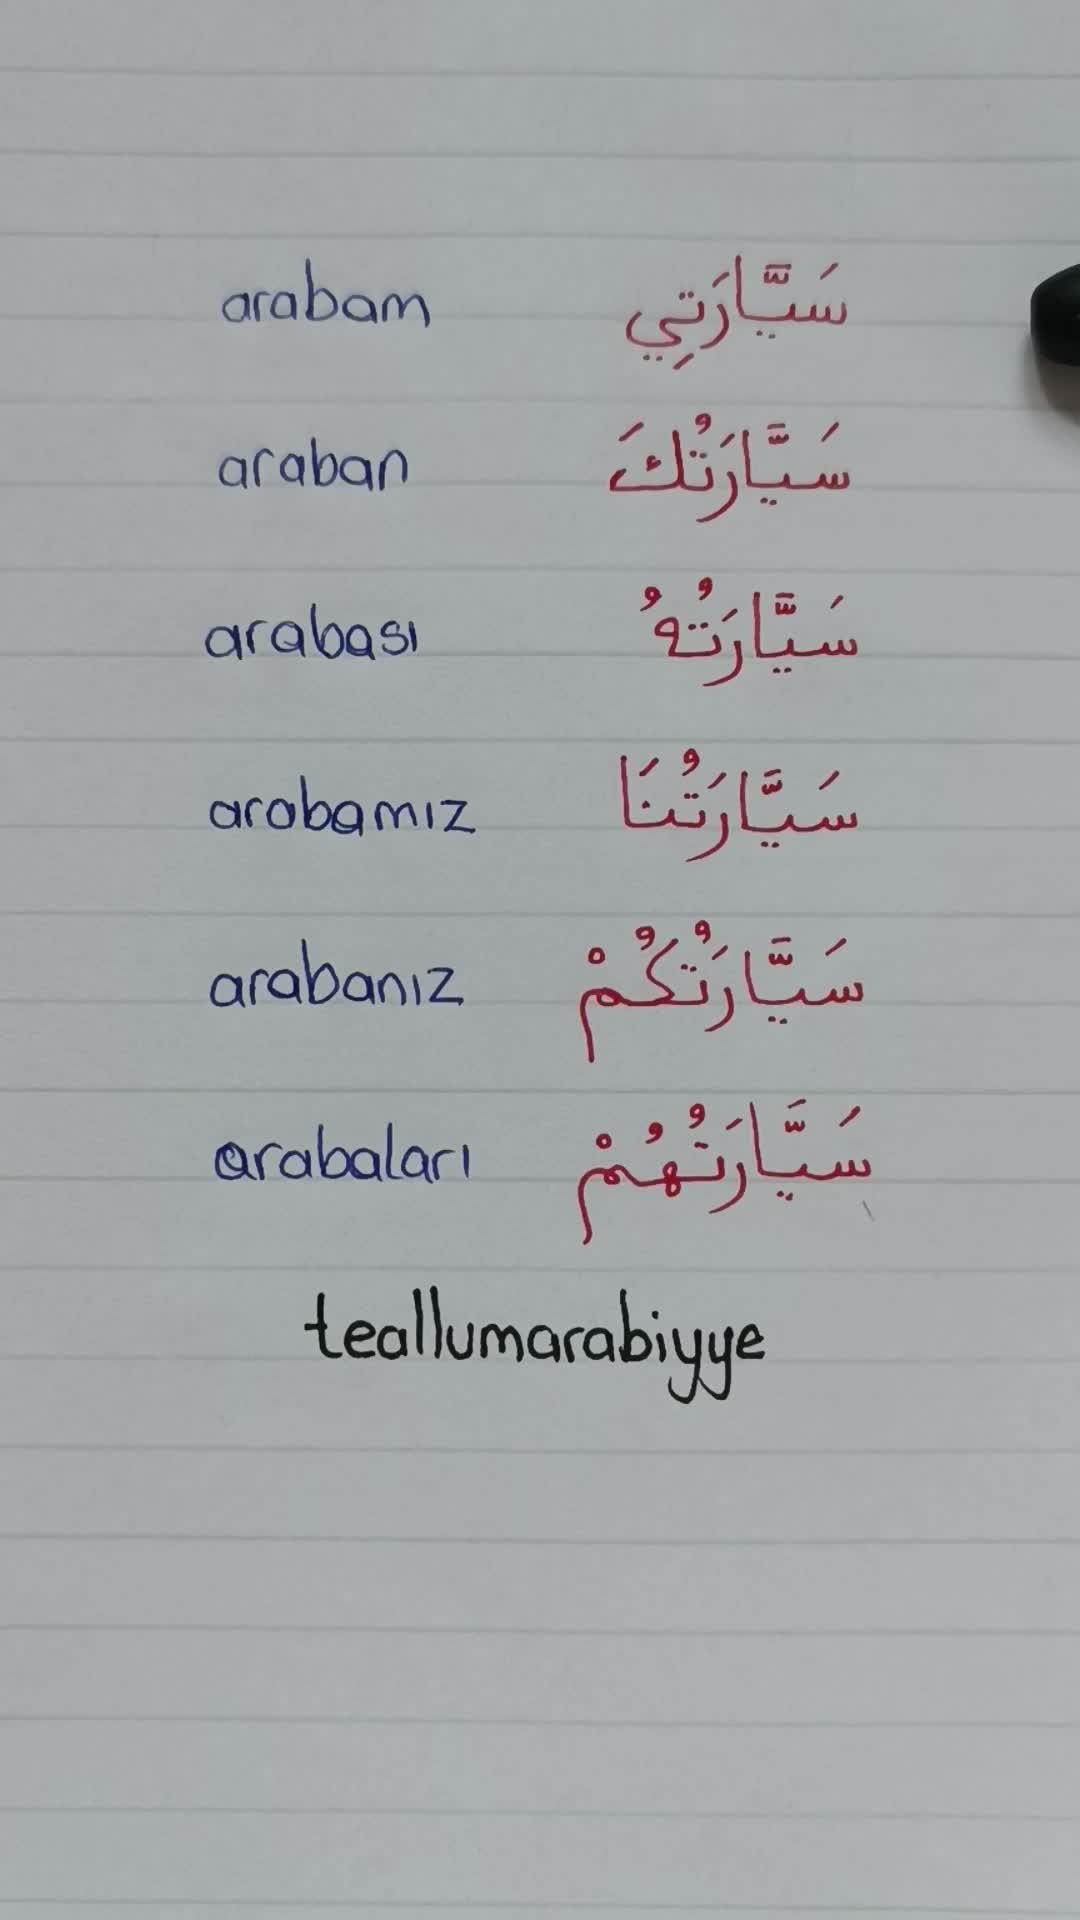 arabam سَيَّارَتِي
araban سَيَّارَتُكَ
arabası سَيَّارَتُهُ
arabamız سَيَّارَتُنَا
arabanız سَيَّارَتُكُمْ
arabaları سَيَّارَتُهُمْ
teallumarabiyye